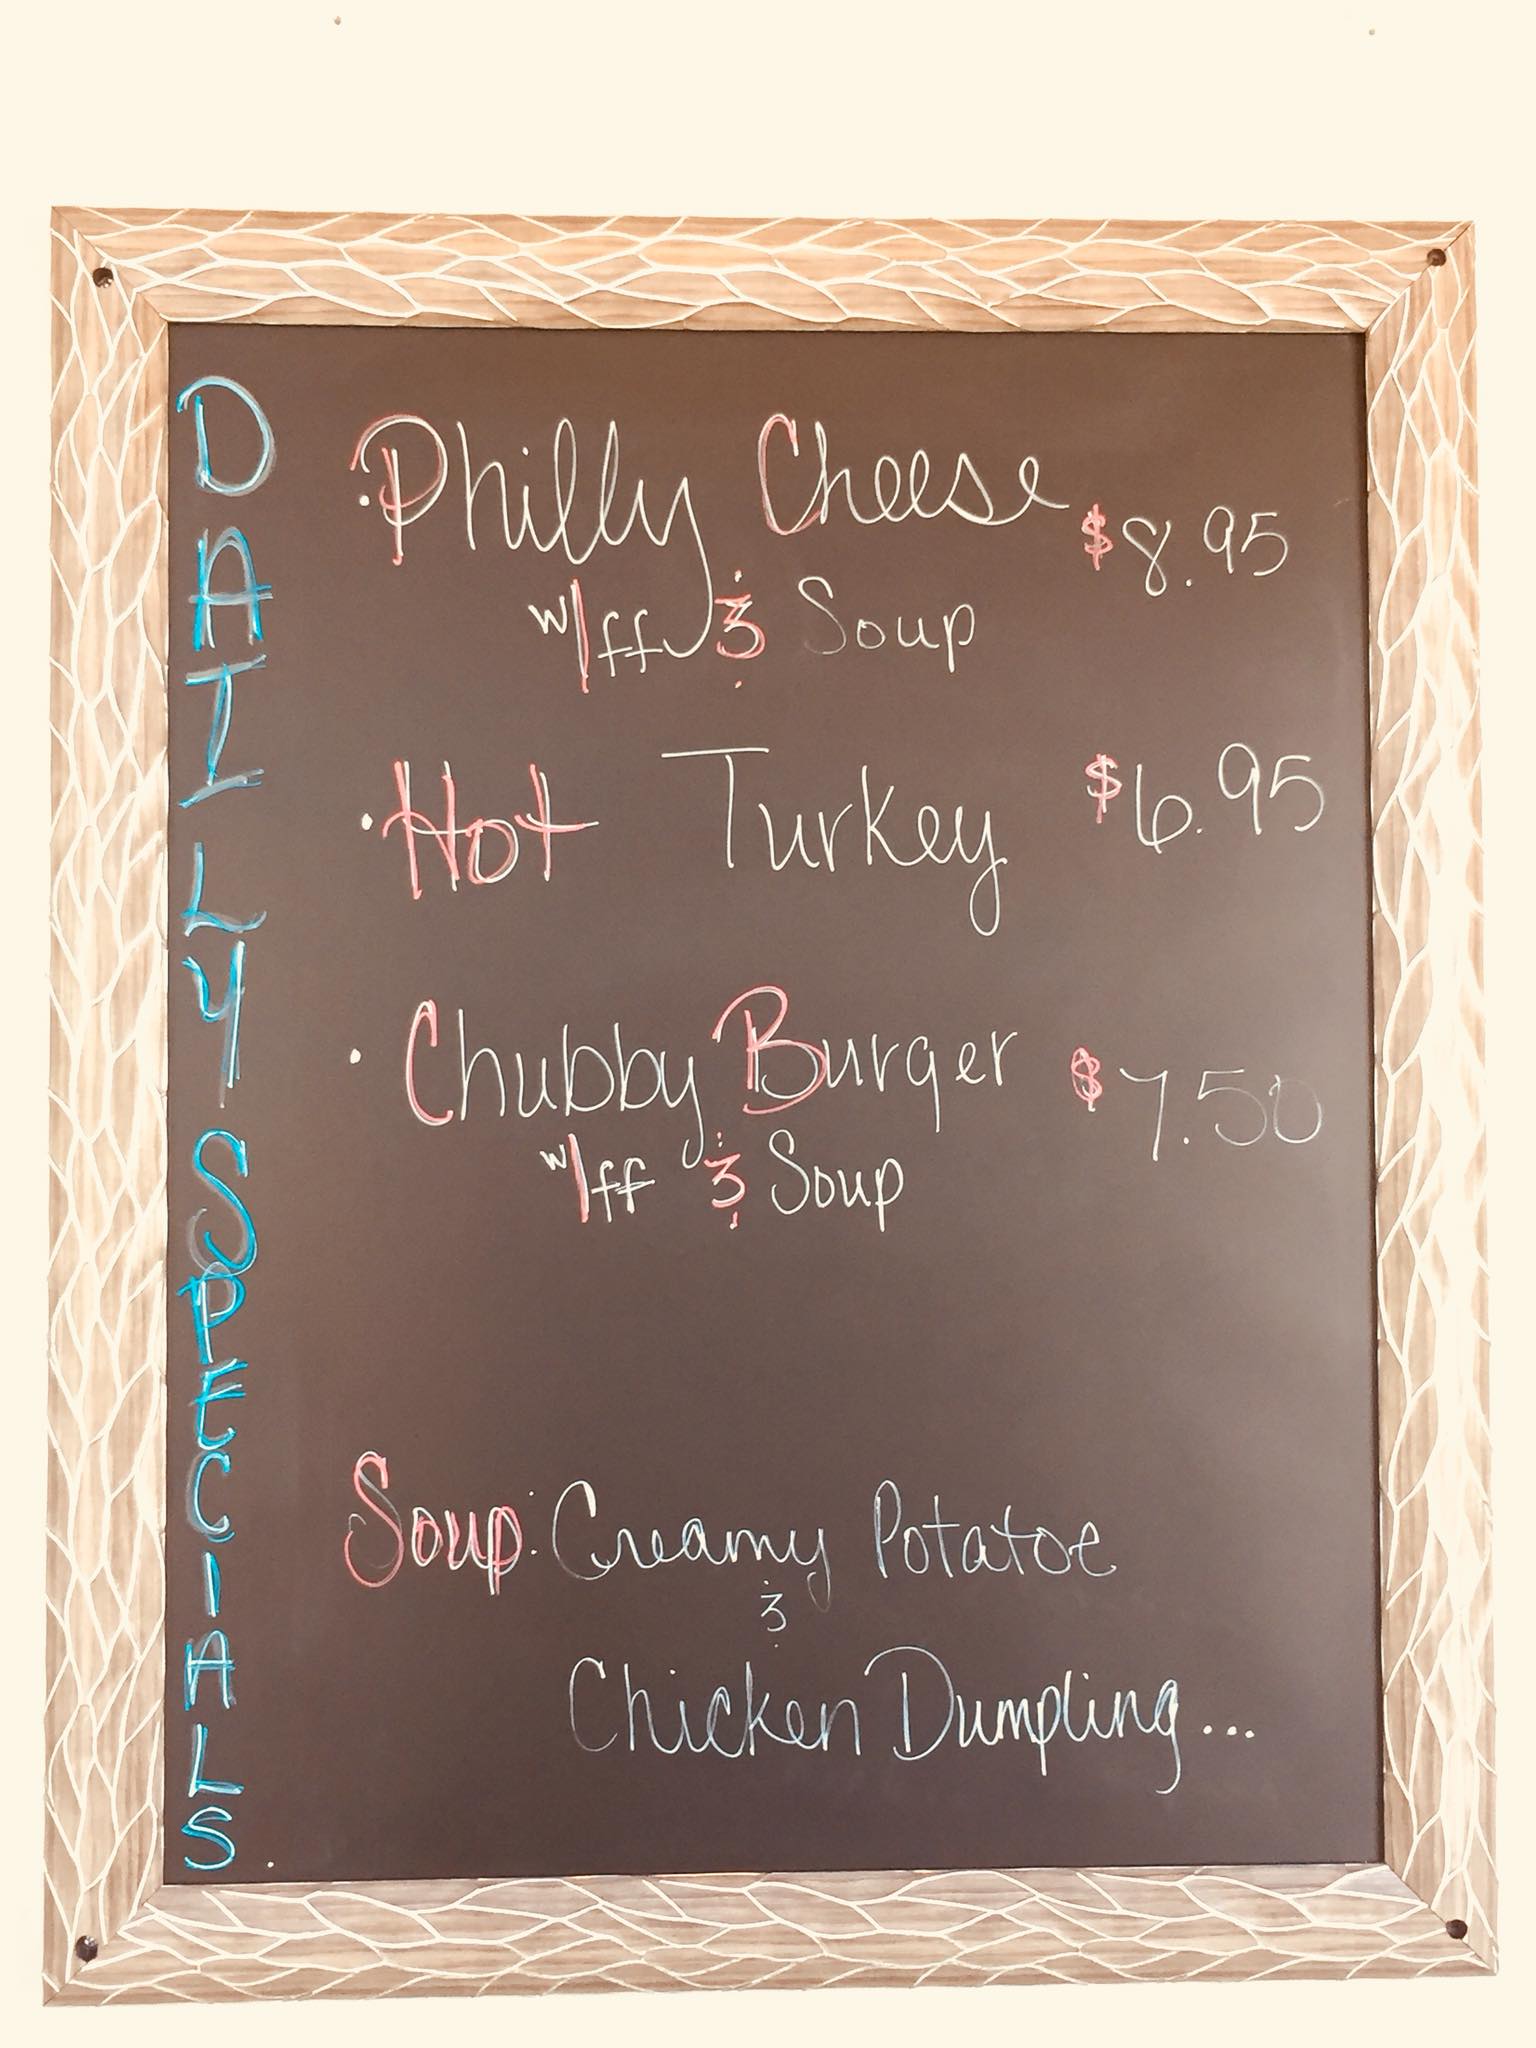 DAILY SPECIALS.
· Philly Cheese $8.95
w/ff & Soup
· Hot Turkey $6.95
· Chubby Burger $7.50
w/ff & Soup
Soup: Creamy Potatoe
&
Chicken Dumpling...